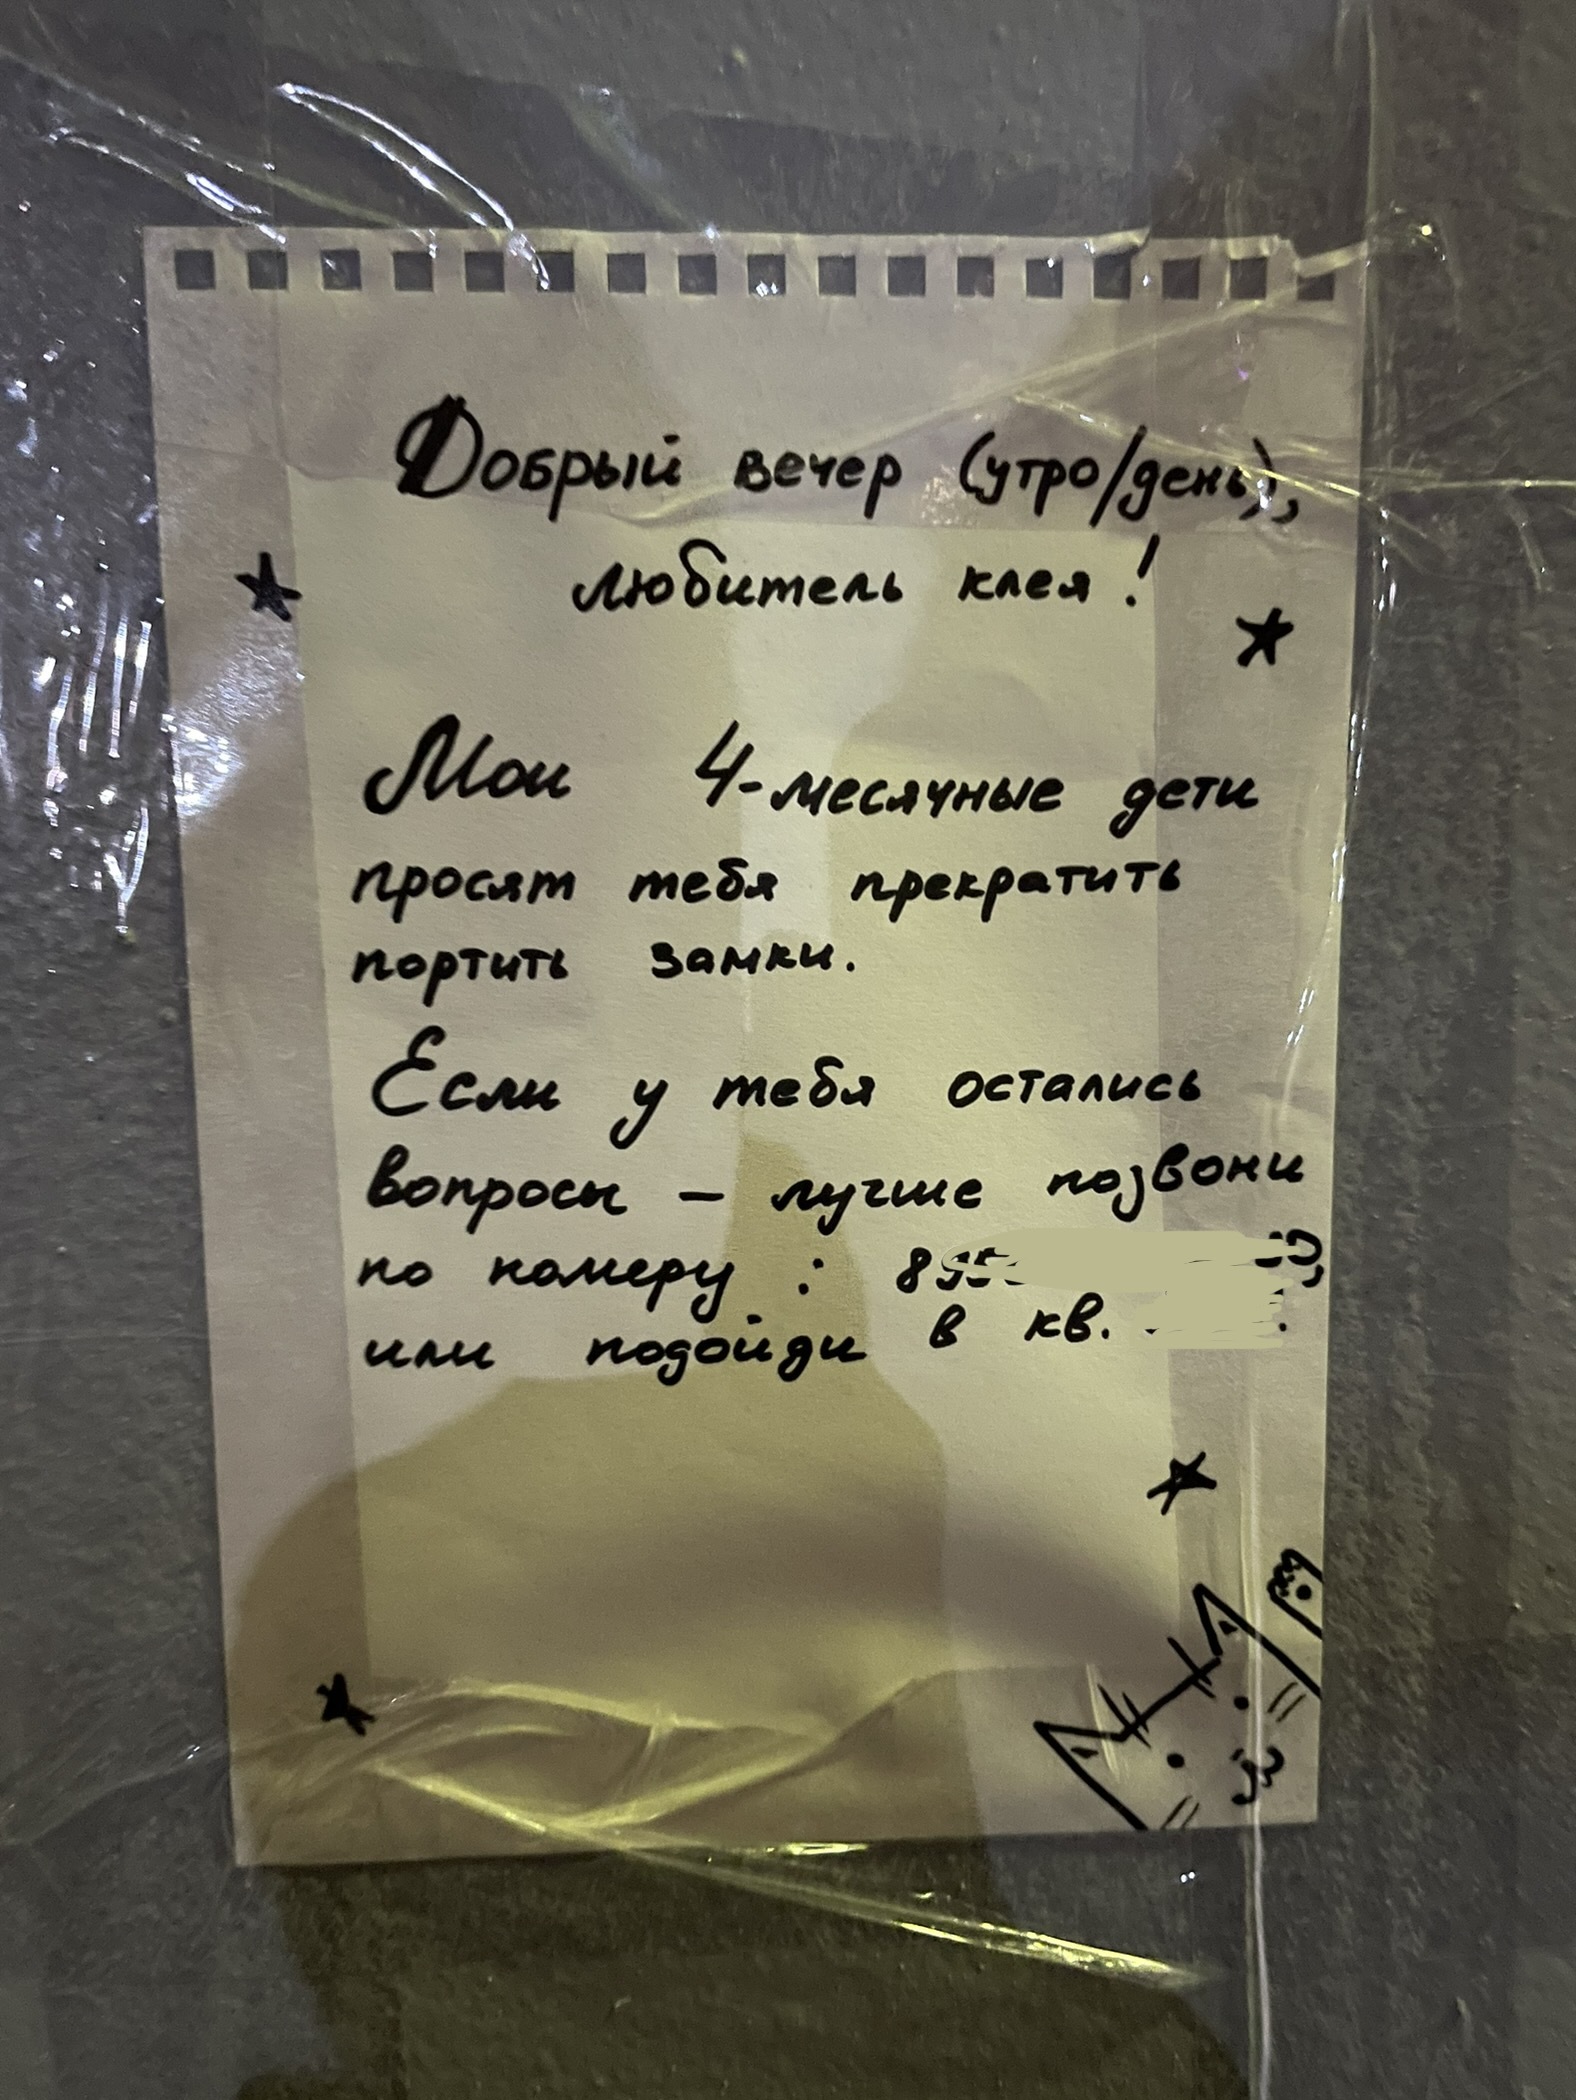 Добрый вечер (утро/день),
любитель клея!
Мои 4-месячные дети
просят тебя прекратить
портить замки.
Если у тебя остались
вопросы – лучше позвони
по номеру : 895
или подойди в кв.